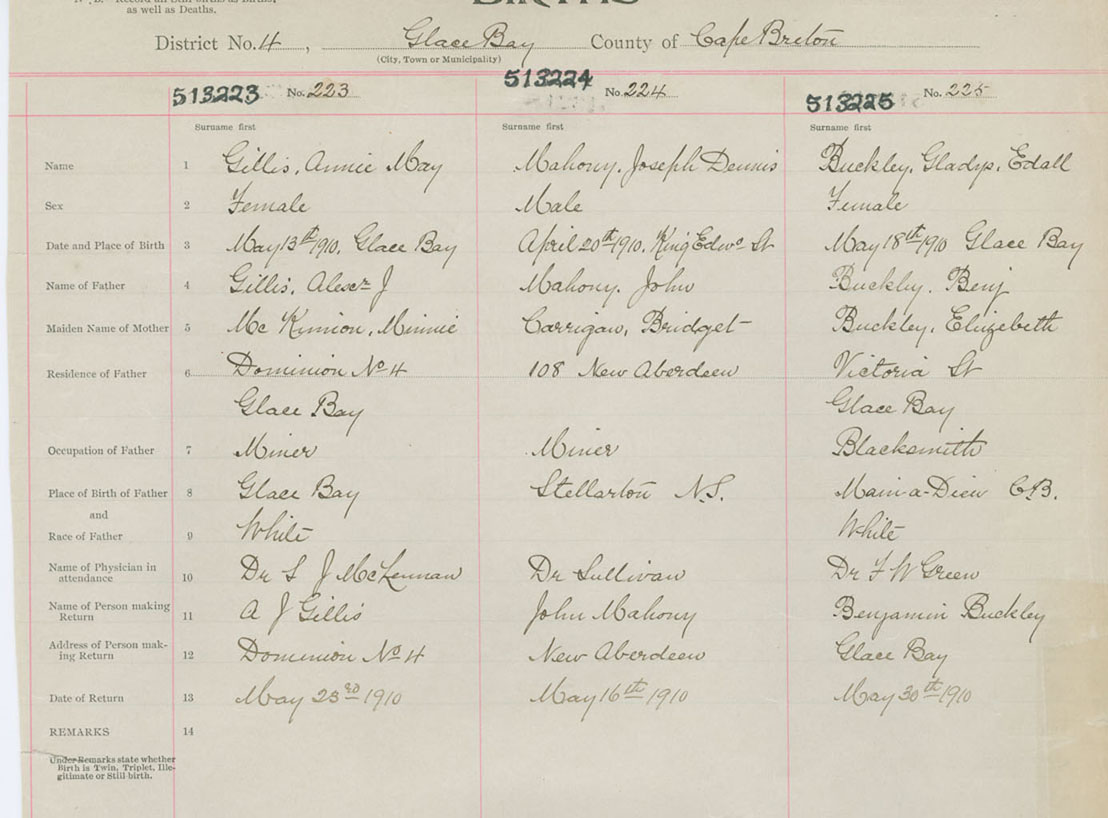 as well as Deaths.
BIRTHS
District No. 4, Glace Bay County of Cape Breton
(City, Town or Municipality)
513223 No. 223 513224 No. 224 513225 No. 225
Surname first Surname first Surname first
Name 1 Gillis, Annie May Mahony, Joseph Dennis Buckley, Gladys, Edall
Sex 2 Female Male Female
Date and Place of Birth 3 May 13th/910, Glace Bay April 20th/910, King Edwd St May 18th/910 Glace Bay
Name of Father 4 Gillis, Alexr J Mahony, John Buckley, Benj
Maiden Name of Mother 5 Mc Kinnion, Minnie Carrigan, Bridget Buckley, Elizebeth
Residence of Father 6 Dominion No 4 108 New Aberdeen Victoria St
Glace Bay Glace Bay
Occupation of Father 7 Miner Miner Blacksmith
Place of Birth of Father 8 Glace Bay Stellarton N.S. Main-a-Dieu C.B.
and
Race of Father 9 White White
Name of Physician in
attendance 10 Dr S J McLennan Dr Sullivan Dr F W Green
Name of Person making
Return 11 A J Gillis John Mahony Benjamin Buckley
Address of Person mak-
ing Return 12 Dominion No 4 New Aberdeen Glace Bay
Date of Return 13 May 23rd 1910 May 16th 1910 May 30th 1910
REMARKS 14
Under Remarks state whether
Birth is Twin, Triplet, Ille-
gitimate or Still-birth.